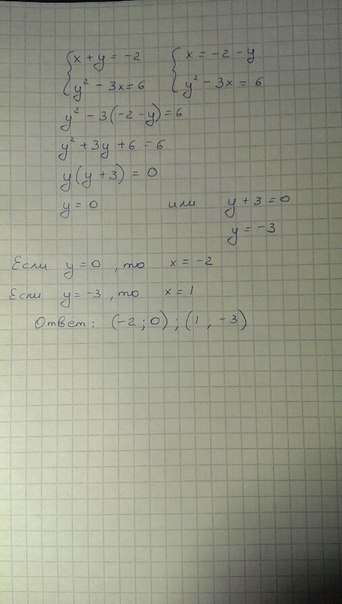 { x + y = -2   { x = -2 - y
{ y² - 3x = 6   { y² - 3x = 6
y² - 3(-2 - y) = 6
y² + 3y + 6 = 6
y(y + 3) = 0
y = 0   или   y + 3 = 0
y = -3
Если y = 0, то x = -2
Если y = -3, то x = 1
Ответ: (-2; 0); (1; -3)